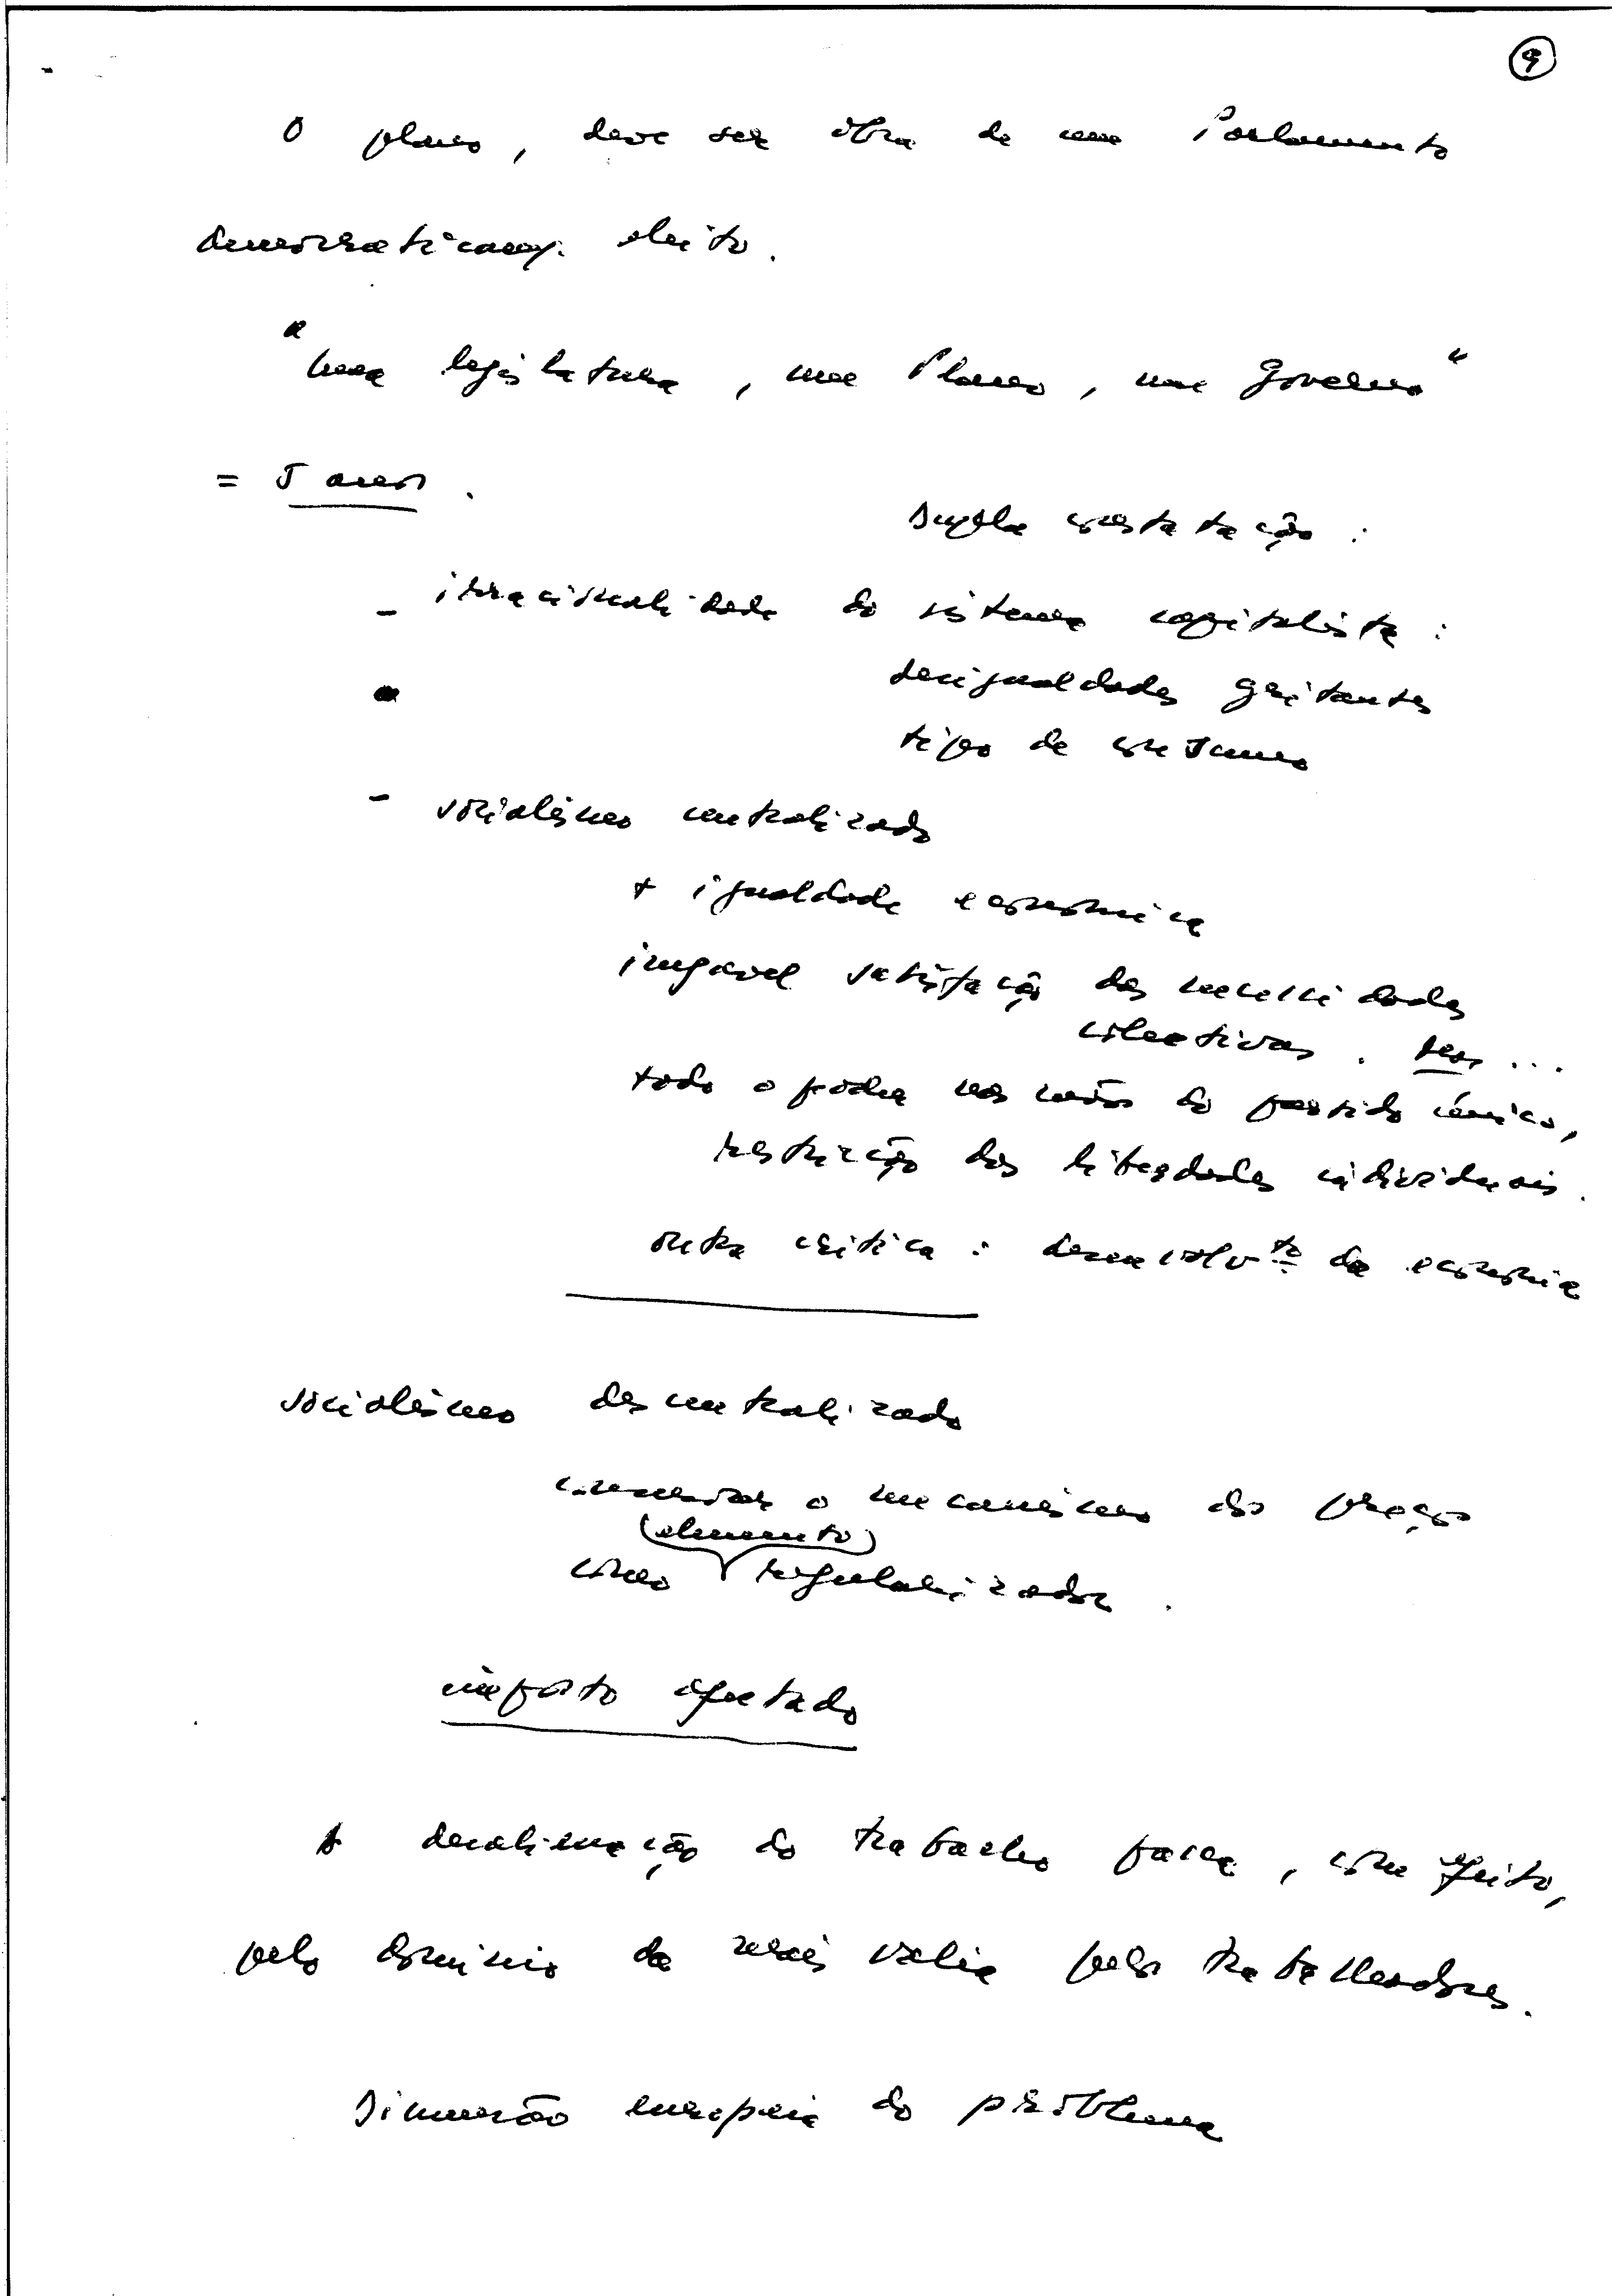 9
O plano, deve ser obra de um Parlamento
democraticam. eleito.
"uma legislatura, um Plano, um Governo"
= 5 anos.
Dupla constatação:
- irracionalidade do sistema capitalista:
desigualdades gritantes
tipo de consumo
- socialismo centralizado
+ igualdade económica
ímpavel satisfação das necessidades
colectivas. Mas...
todo o poder nas mãos do partido único,
restrição das liberdades individuais.
outra crítica: desenvolvto da economia
socialismo descentralizado
conservar o mecanismo dos preços
(elemento)
como regularizador.
imposto afectado
A desalienação do trabalho passa, com efeito,
pelo domínio da mais valia pelos trabalhadores.
Dimensão europeia do problema